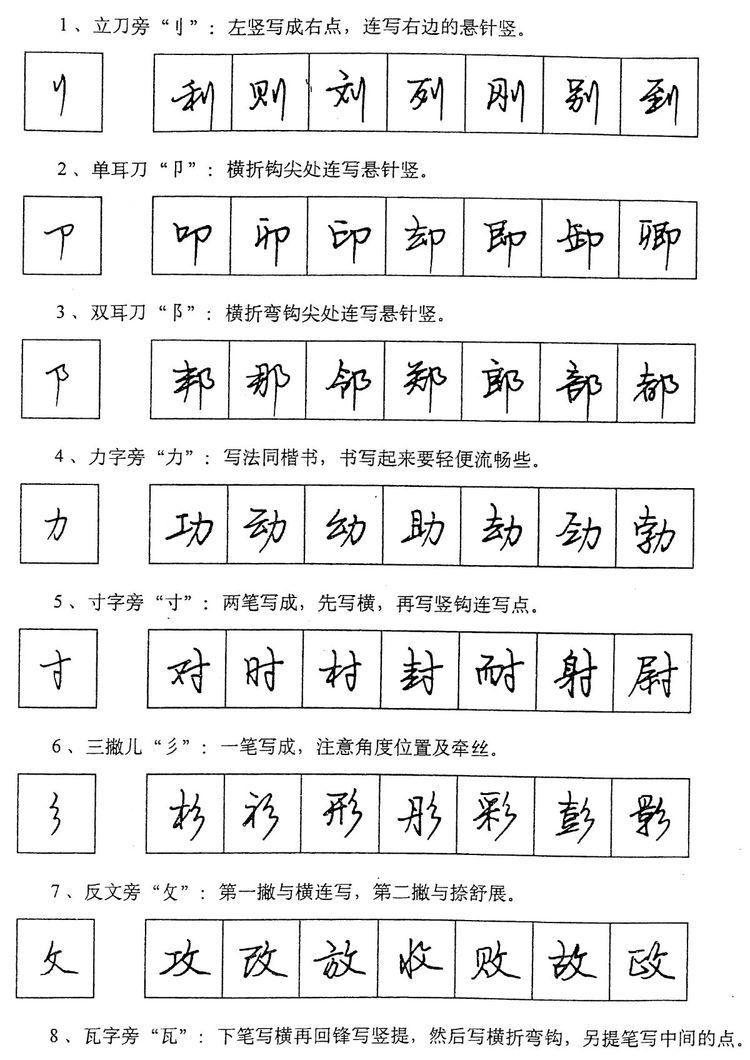 1、立刀旁“刂”：左竖写成右点，连写右边的悬针竖。
刂 利 则 刘 列 刚 别 到
2、单耳刀“卩”：横折钩尖处连写悬针竖。
卩 叩 卯 印 却 即 卸 卿
3、双耳刀“阝”：横折弯钩尖处连写悬针竖。
阝 邦 那 邻 郑 郎 部 都
4、力字旁“力”：写法同楷书，书写起来要轻便流畅些。
力 功 动 幼 助 劫 劲 勃
5、寸字旁“寸”：两笔写成，先写横，再写竖钩连写点。
寸 对 时 村 封 耐 射 尉
6、三撇儿“彡”：一笔写成，注意角度位置及牵丝。
彡 杉 衫 形 彤 彩 彭 影
7、反文旁“攵”：第一撇与横连写，第二撇与捺舒展。
攵 攻 改 放 收 败 故 政
8、瓦字旁“瓦”：下笔写横再回锋写竖提，然后写横折弯钩，另提笔写中间的点。